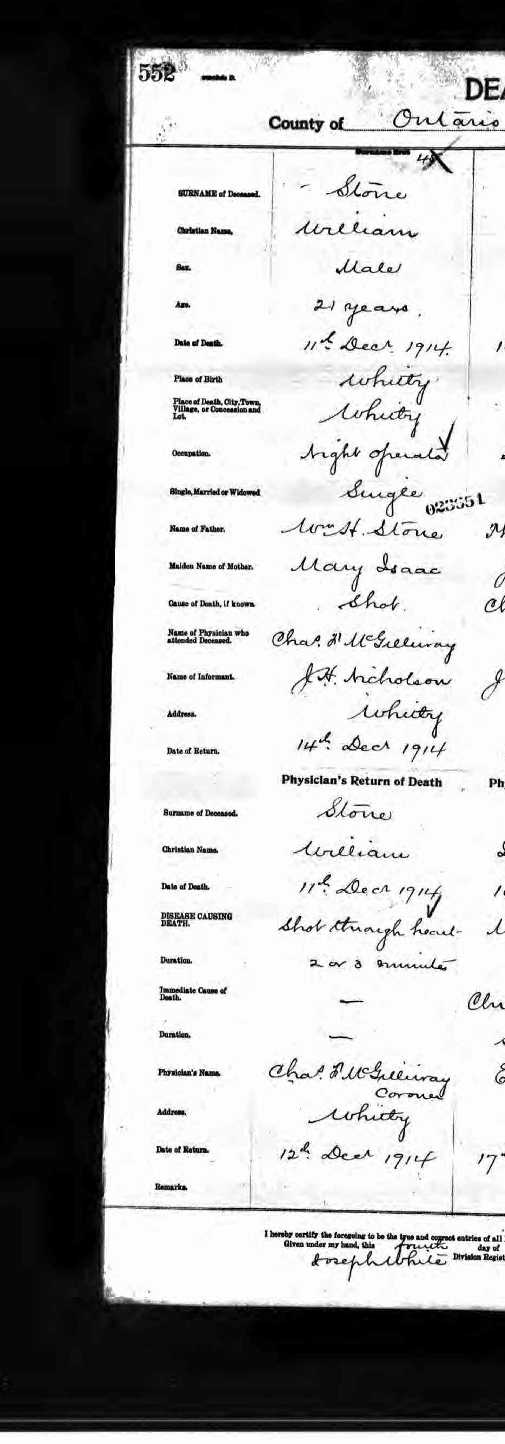 552
DEA
County of Ontario
48
SURNAME of Deceased. Stone
Christian Name, William
Sex. Male
Age. 21 years.
Date of Death. 11th Decr 1914.
Place of Birth Whitby
Place of Death, City, Town,
Village, or Concession and
Lot. Whitby
Occupation. Night operator
Single, Married or Widowed Single
023551
Name of Father. Wm H. Stone
Maiden Name of Mother. Mary Isaac
Cause of Death, if known Shot.
Name of Physician who
attended Deceased. Chas. F McGillivray
Name of Informant. J H. Nicholson
Address. Whitby
Date of Return. 14th Decr 1914
Physician's Return of Death Ph
Surname of Deceased. Stone
Christian Name. William
Date of Death. 11th Decr 1914
DISEASE CAUSING
DEATH. Shot through heart
Duration. 2 or 3 minutes
Immediate Cause of
Death. —
Duration. —
Physician's Name. Chas. F McGillivray
Coroner
Address. Whitby
Date of Return. 12th Decr 1914 17
Remarks.
I hereby certify the foregoing to be the true and correct entries of all
Given under my hand, this fourth day of
Joseph White Division Regist